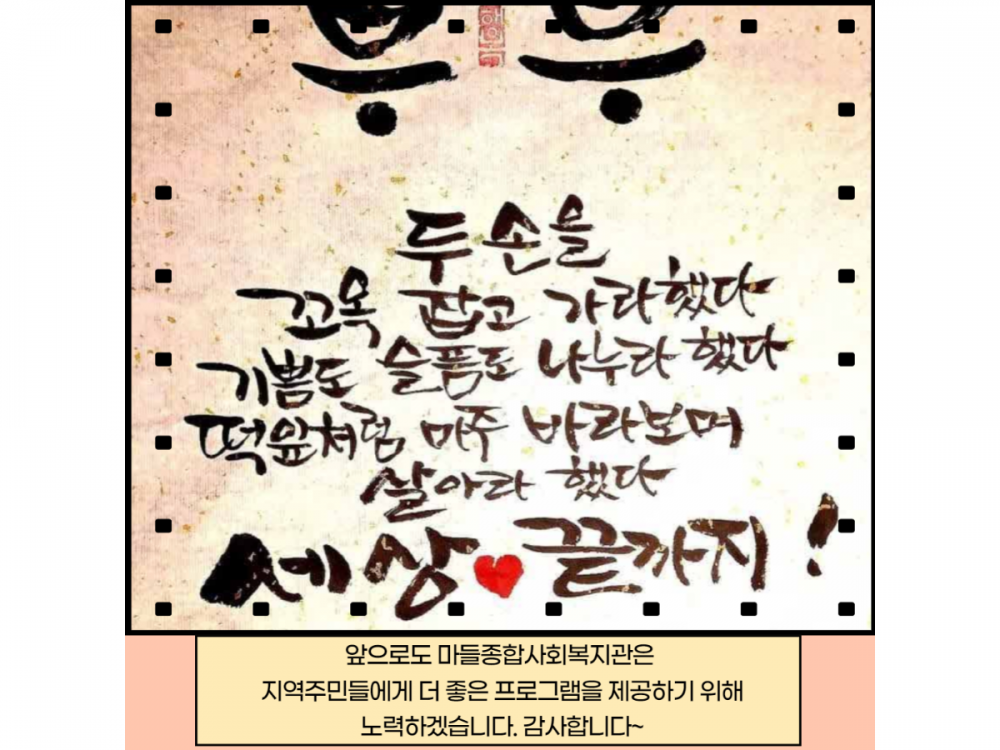 부부
두 손을
꼬옥 잡고 가라했다
기쁨도 슬픔도 나누라 했다
떡잎처럼 마주 바라보며
살아라 했다
세상 끝까지!
앞으로도 마들종합사회복지관은
지역주민들에게 더 좋은 프로그램을 제공하기 위해
노력하겠습니다. 감사합니다~